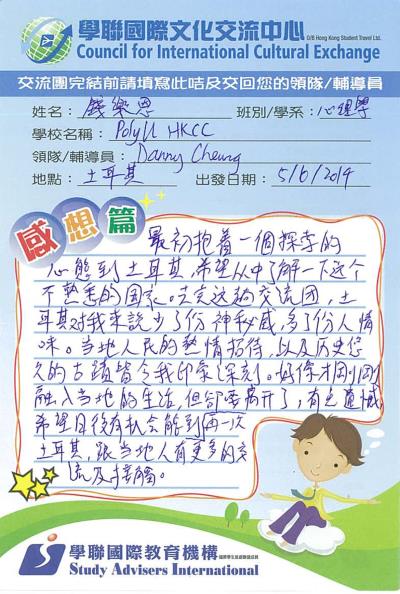 學聯國際文化交流中心
O/B Hong Kong Student Travel Ltd.
Council for International Cultural Exchange
交流團完結前請填寫此咭及交回您的領隊/輔導員
姓名：錢樂恩 班別/學系：心理學
學校名稱：PolyU HKCC
領隊/輔導員：Danny Cheung
地點：土耳其 出發日期：5/6/2014
感想篇
最初抱着一個探李的
心態到土耳其，希望从中了解一下这个
不熟悉的国家。去完这趟交流团，土
耳其对我来説少了份神秘感，多了份人情
味。当地人民的熱情招待，以及历史悠
久的古蹟皆令我印象深刻。好像才刚刚
融入当地的生活，但却要离开了，有点遺憾
希望日後有机会能到再一次
土耳其，跟当地人有更多的交
流及接触。
學聯國際教育機構
Study Advisers International